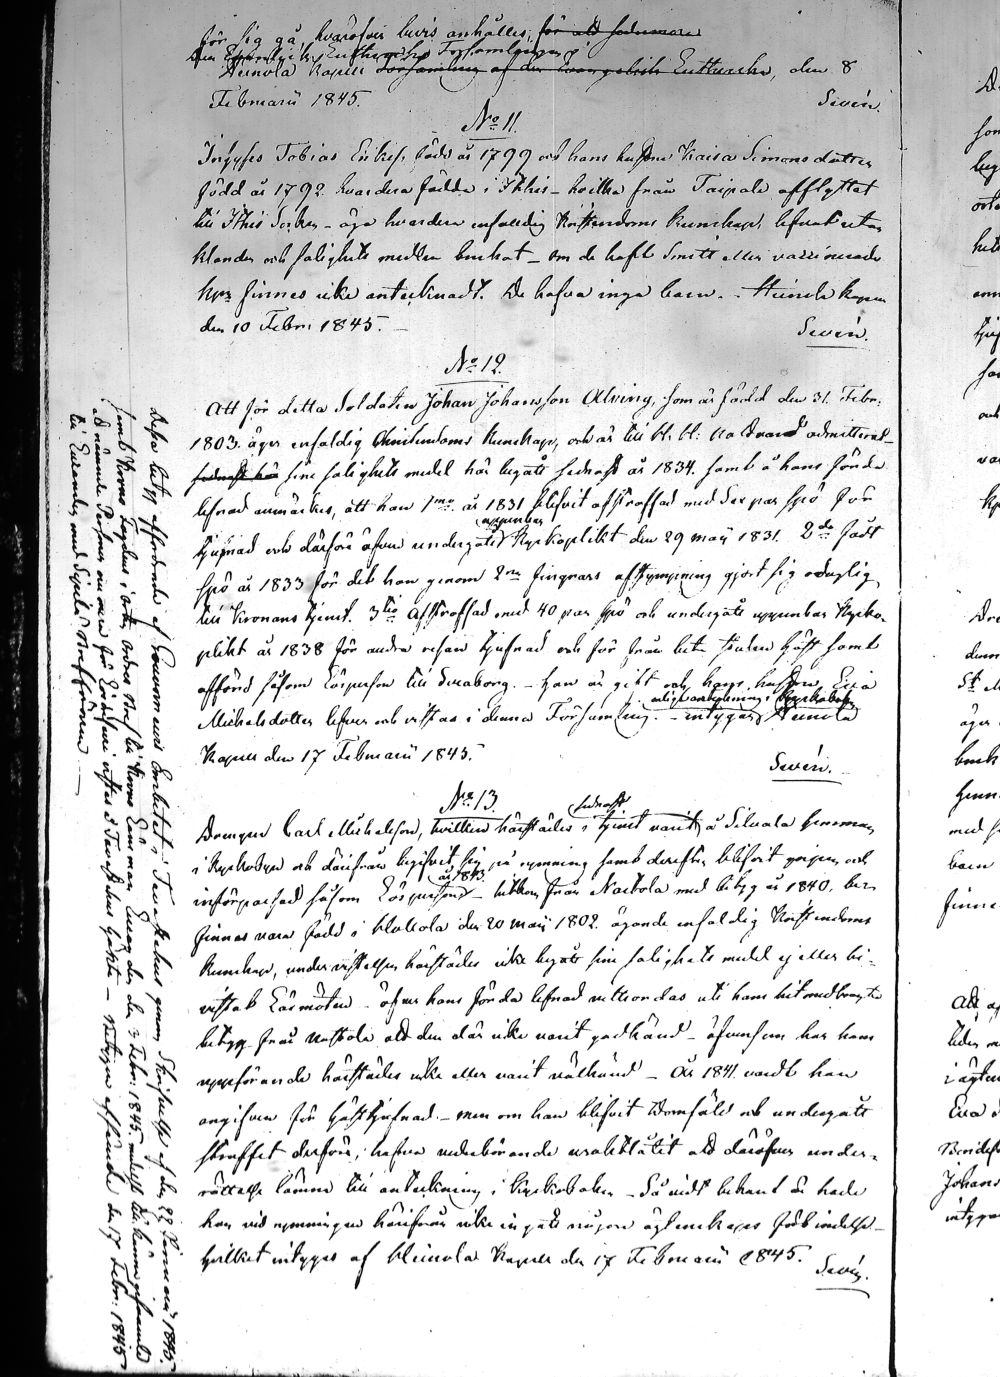 för sig gå, hvarefter bevis anhålles, för att sedermera
den Evangelisk Lutherska Församlingen
Heinola Kapell Församling af den Evangelisk Lutherska, den 8
Februarii 1845. Sevén.
No 11.
Inhyses Tobias Eriksson, född år 1799 och hans hustru Kaisa Simonsdotter
född år 1792 hvardera födde i Ithis - hvilka från Taipale afflyttat
till Ithis Socken - äga hvardera enfaldig Christendoms Kunskap, lefvat utan
klander och salighets medlen brukat - om de haft Smitt eller vaccinerade
finnes icke antecknadt. De hafva inga barn. - Heinola Kapell
den 10 Febr. 1845. - Sevén.
No 12.
Att för detta Soldaten Johan Johansson Alving, som är född den 31. Febr.
1803. äger enfaldig Christendoms Kunskap, och är till H. H. Nattvard admitterad -
sednast här sine salighets medel här begått sednast år 1834. samt å hans förda
lefnad anmärkes, att han 1mo år 1831 blifvit afstraffad med Sex par spö för
tjufnad och därför äfven undergått uppenbar Kyrkoplikt den 29 maij 1831. 2do fådt
spö år 1833 för det han genom 2ne fingrars afstympning gjort sig oduglig
till Kronans tjenst. 3tio Afstraffad med 40 par spö och undergått uppenbar Kyrko-
plikt år 1838 för andra resan tjufnad och för från ... stulen häst samt
afförd såsom Lösperson till Sveaborg. - han är gift och hans hustru, Eva
Michelsdotter lefver och vistas i denna Församling. - enligt anteckning i Kyrkoboken intygar Heinola
Kapell den 17 Februarii 1845. Sevén.
No 13.
Drengen Carl Michelsson, hvilken härstädes i tjenst varit sednast å Silvala hemman,
i Kyrkobyn och därifrån begifvit sig på rymning samt derefter blifvit gripen och
införpassad såsom Lösperson år 1843 - kommen från Nastola med betyg år 1840. be-
finnes vara född i Hollola den 20 maij 1802. ägande enfaldig Christendoms
Kunskap, under vistelsen härstädes icke begått sine salighets medel ej eller be-
vistat Läsmöten - öfver hans förda lefnad vitsordas uti hans hitmedbragte
betyg från Nastola att den där icke varit godkänd - äfvensom har hans
uppförande härstädes icke eller varit välkänd - År 1841. vardt han
angifven för hästtjufnad - men om han blifvit Domfäld och undergått
straffet derför, hafva vederbörande uraktlåtit att däröfver under-
rättelse lämna till anteckning i Kyrkoboken - Så vidt bekant är hade
han vid rymningen härifrån icke ingått någon äktenskaps förbindelse -
hvilket intygas af Heinola Kapell den 17 Februarii 1845. Sevén.
Dessa betyg affordrade af Gouverneurs Embetet i Tavastehus genom Skrifvelse af den 22 Januarii 1845.
samt Krono Fogdens i orten ordres bref till Krono Länsman ... den 3 Febr. 1845.
att nämnde Person ... i Tavastehus häkte - ... den 17 Febr. 1845